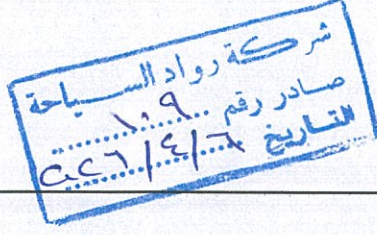 شركة رواد السياحة
صادر رقم ١٠٩
التاريخ ٦/٤/٢٠٢٦